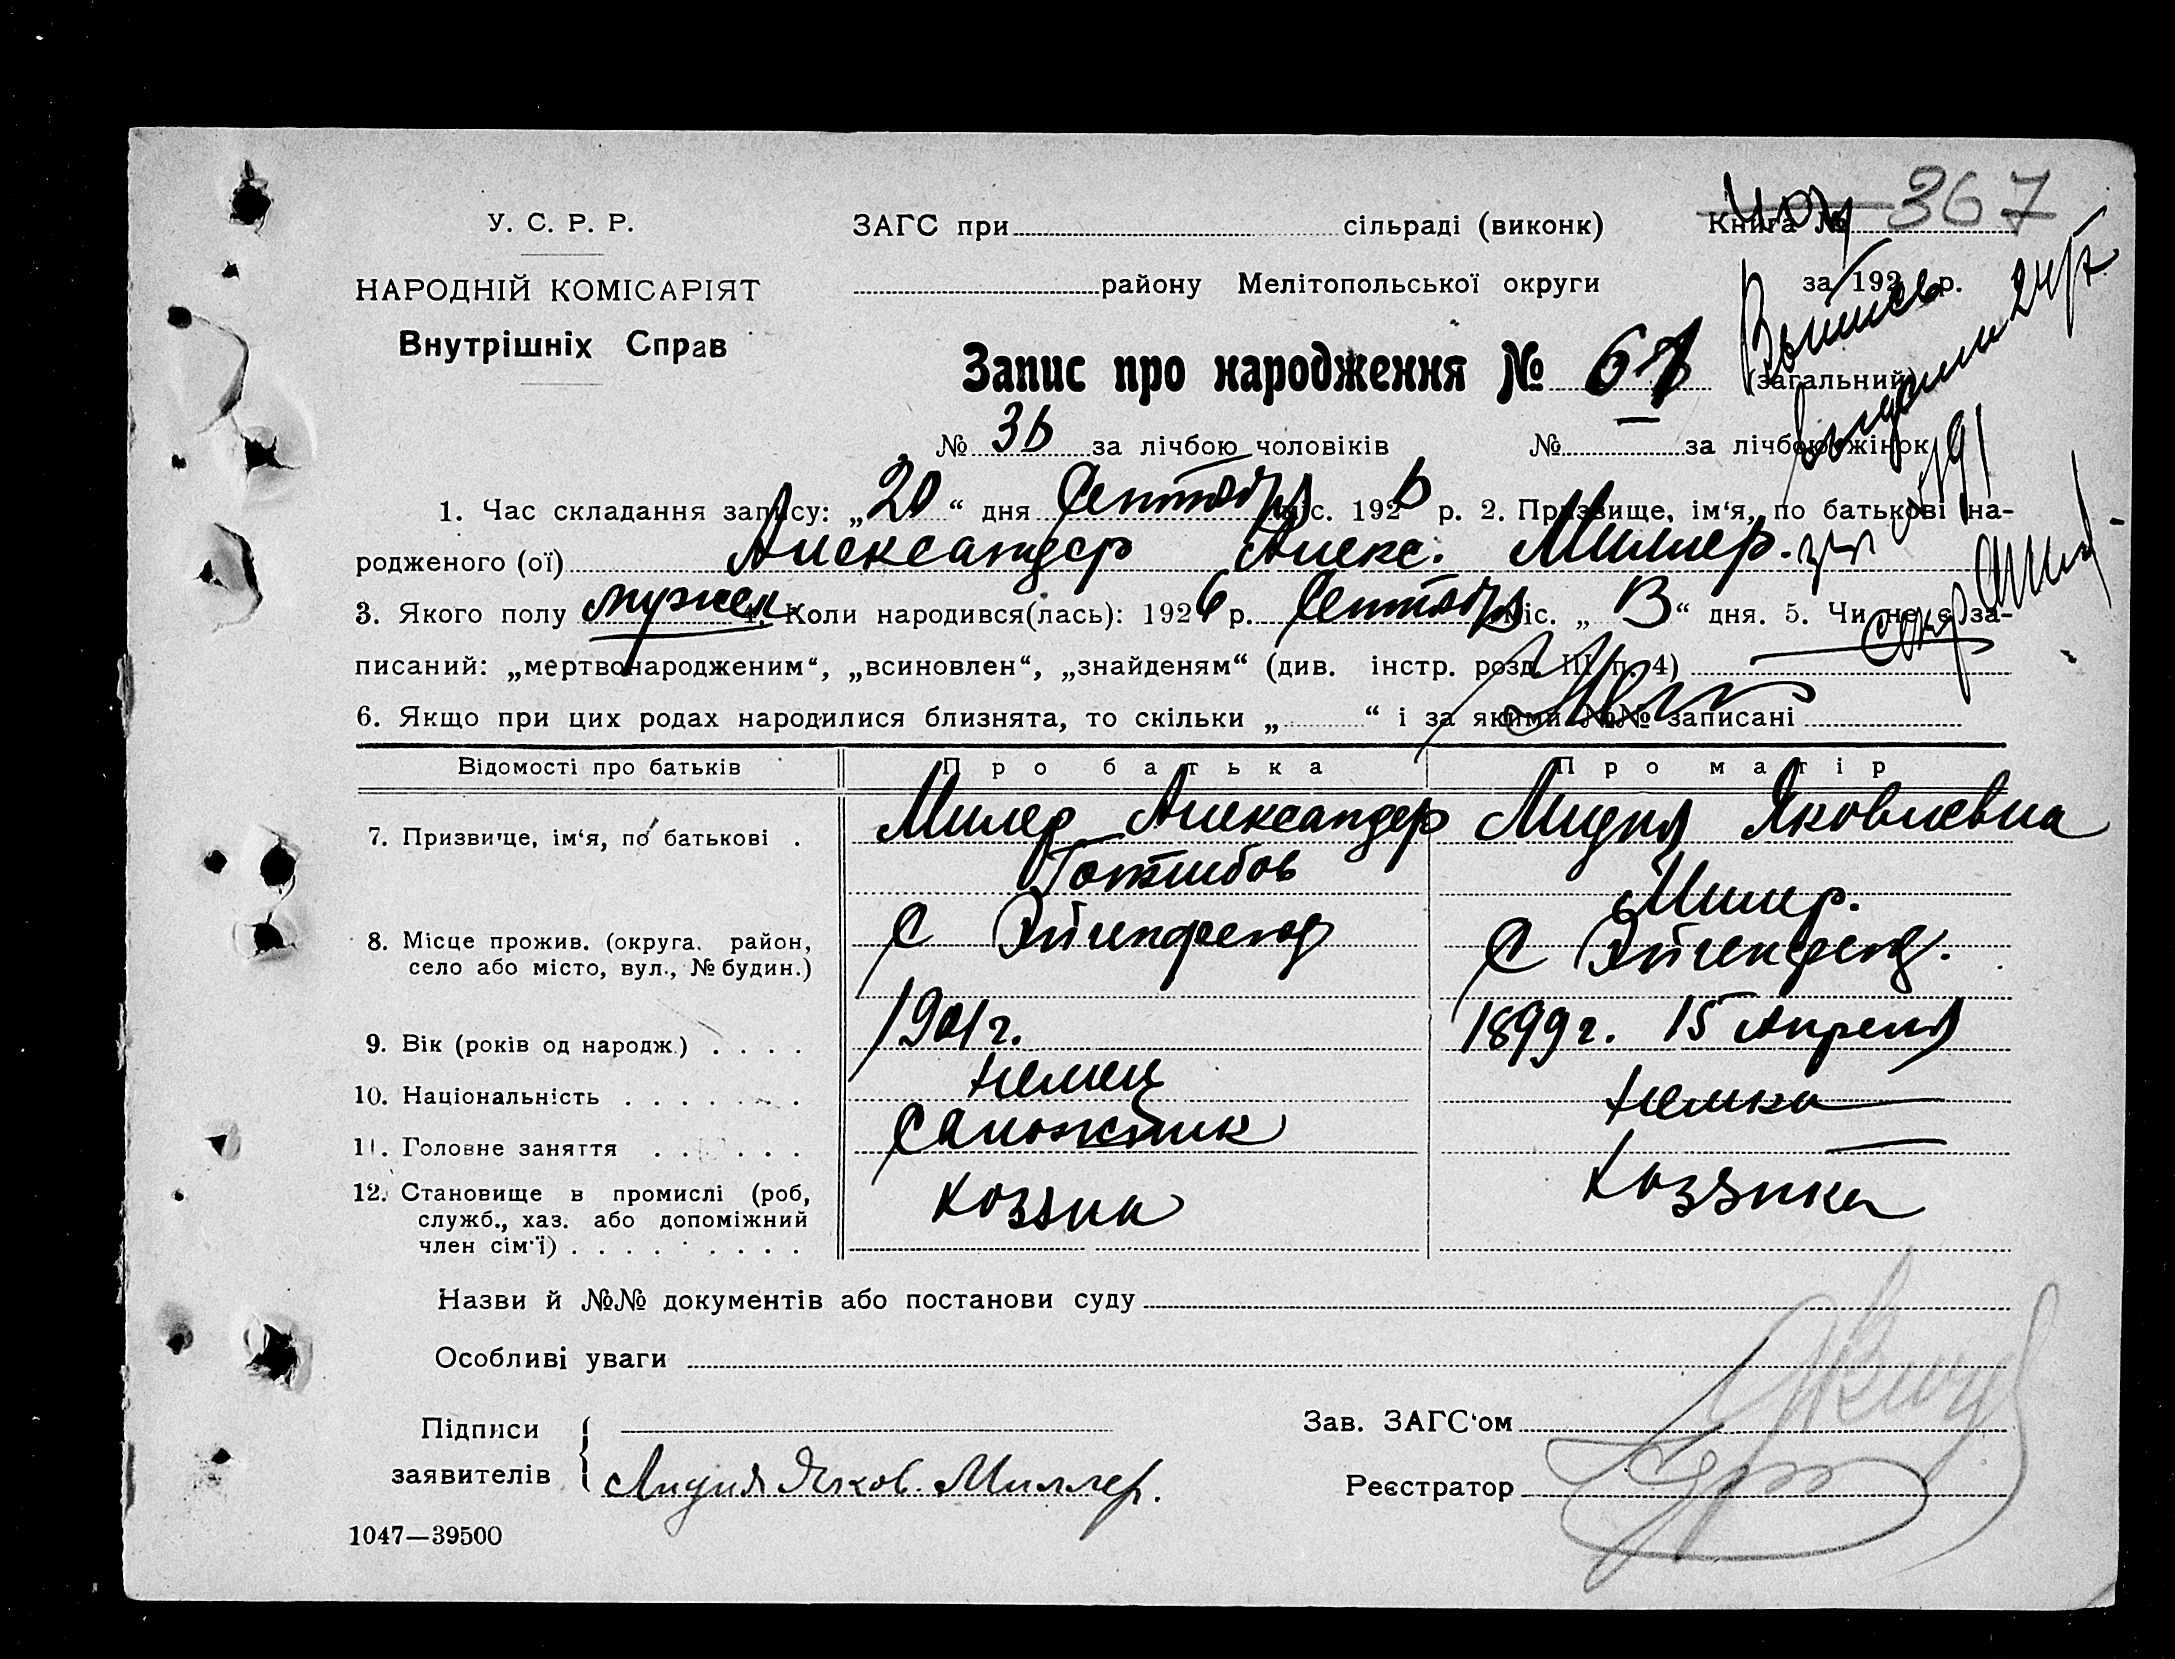 367
У. С. Р. Р.
ЗАГС при сільраді (виконк) Книга №
НАРОДНІЙ КОМІСАРІЯТ
району Мелітопольської округи за 192 р.
Внутрішніх Справ
Выпись
Запис про народження № 67 (загальний)
№ 36 за лічбою чоловіків № за лічбою жінок
1. Час складання запису: „20“ дня Сентября міс. 1926 р. 2. Призвище, ім‘я, по батькові на-
родженого (ої) Александер Алекс. Миллер.
3. Якого полу мужск 4. Коли народився(лась): 1926 р. Сентября міс. „13“ дня. 5. Чи не є за-
писаний: „мертвонародженим“, „всиновлен“, „знайденям“ (див. інстр. розд. III п. 4)
6. Якщо при цих родах народилися близнята, то скільки „ “ і за якими №№ записані
Відомості про батьків Про батька Про матір
7. Призвище, ім‘я, по батькові . Милер Александер Лидия Яковлевна
Готлибов Милер.
8. Місце прожив. (округа. район, С Эйгенфельд С Эйгенфельд.
село або місто, вул., № будин.)
9. Вік (років од народж.) . . . . 1901 г. 1899 г. 15 Апреля
10. Національність . . . . . . . немец немка
11. Головне заняття . . . . . .
12. Становище в промислі (роб,
служб., хаз. або допоміжний
член сім‘ї) . . . . . . . . . .
Назви й №№ документів або постанови суду
Особливі уваги
Підписи
Зав. ЗАГС‘ом
заявителів Лидия Яков. Миллер.
Реєстратор
1047—39500